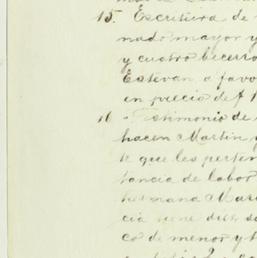 15. Escritura de
nado mayor y
y cuatro becerro
Estevan a favo
en precio de $1
16. Testimonio de
hacen Martin y
te que les perten
tancia de labor
hermana Mari
cia tiene diez
co de menor y